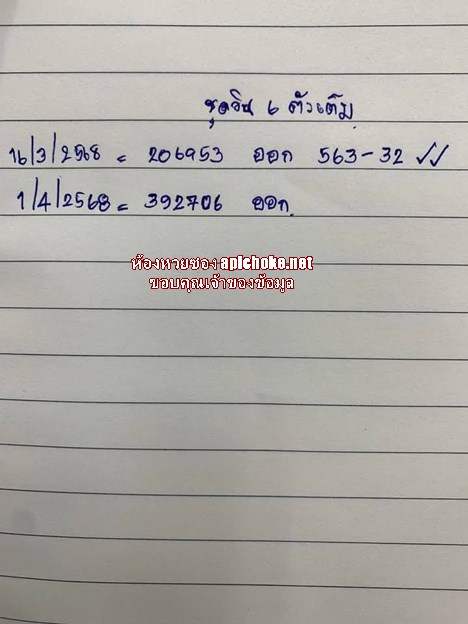 ชุดวิน 6 ตัวเต็ม
16/3/2568 = 206953 ออก 563-32 ✓✓
1/4/2568 = 392706 ออก.
ห้องหวยของ apichoke.net
ขอบคุณเจ้าของข้อมูล